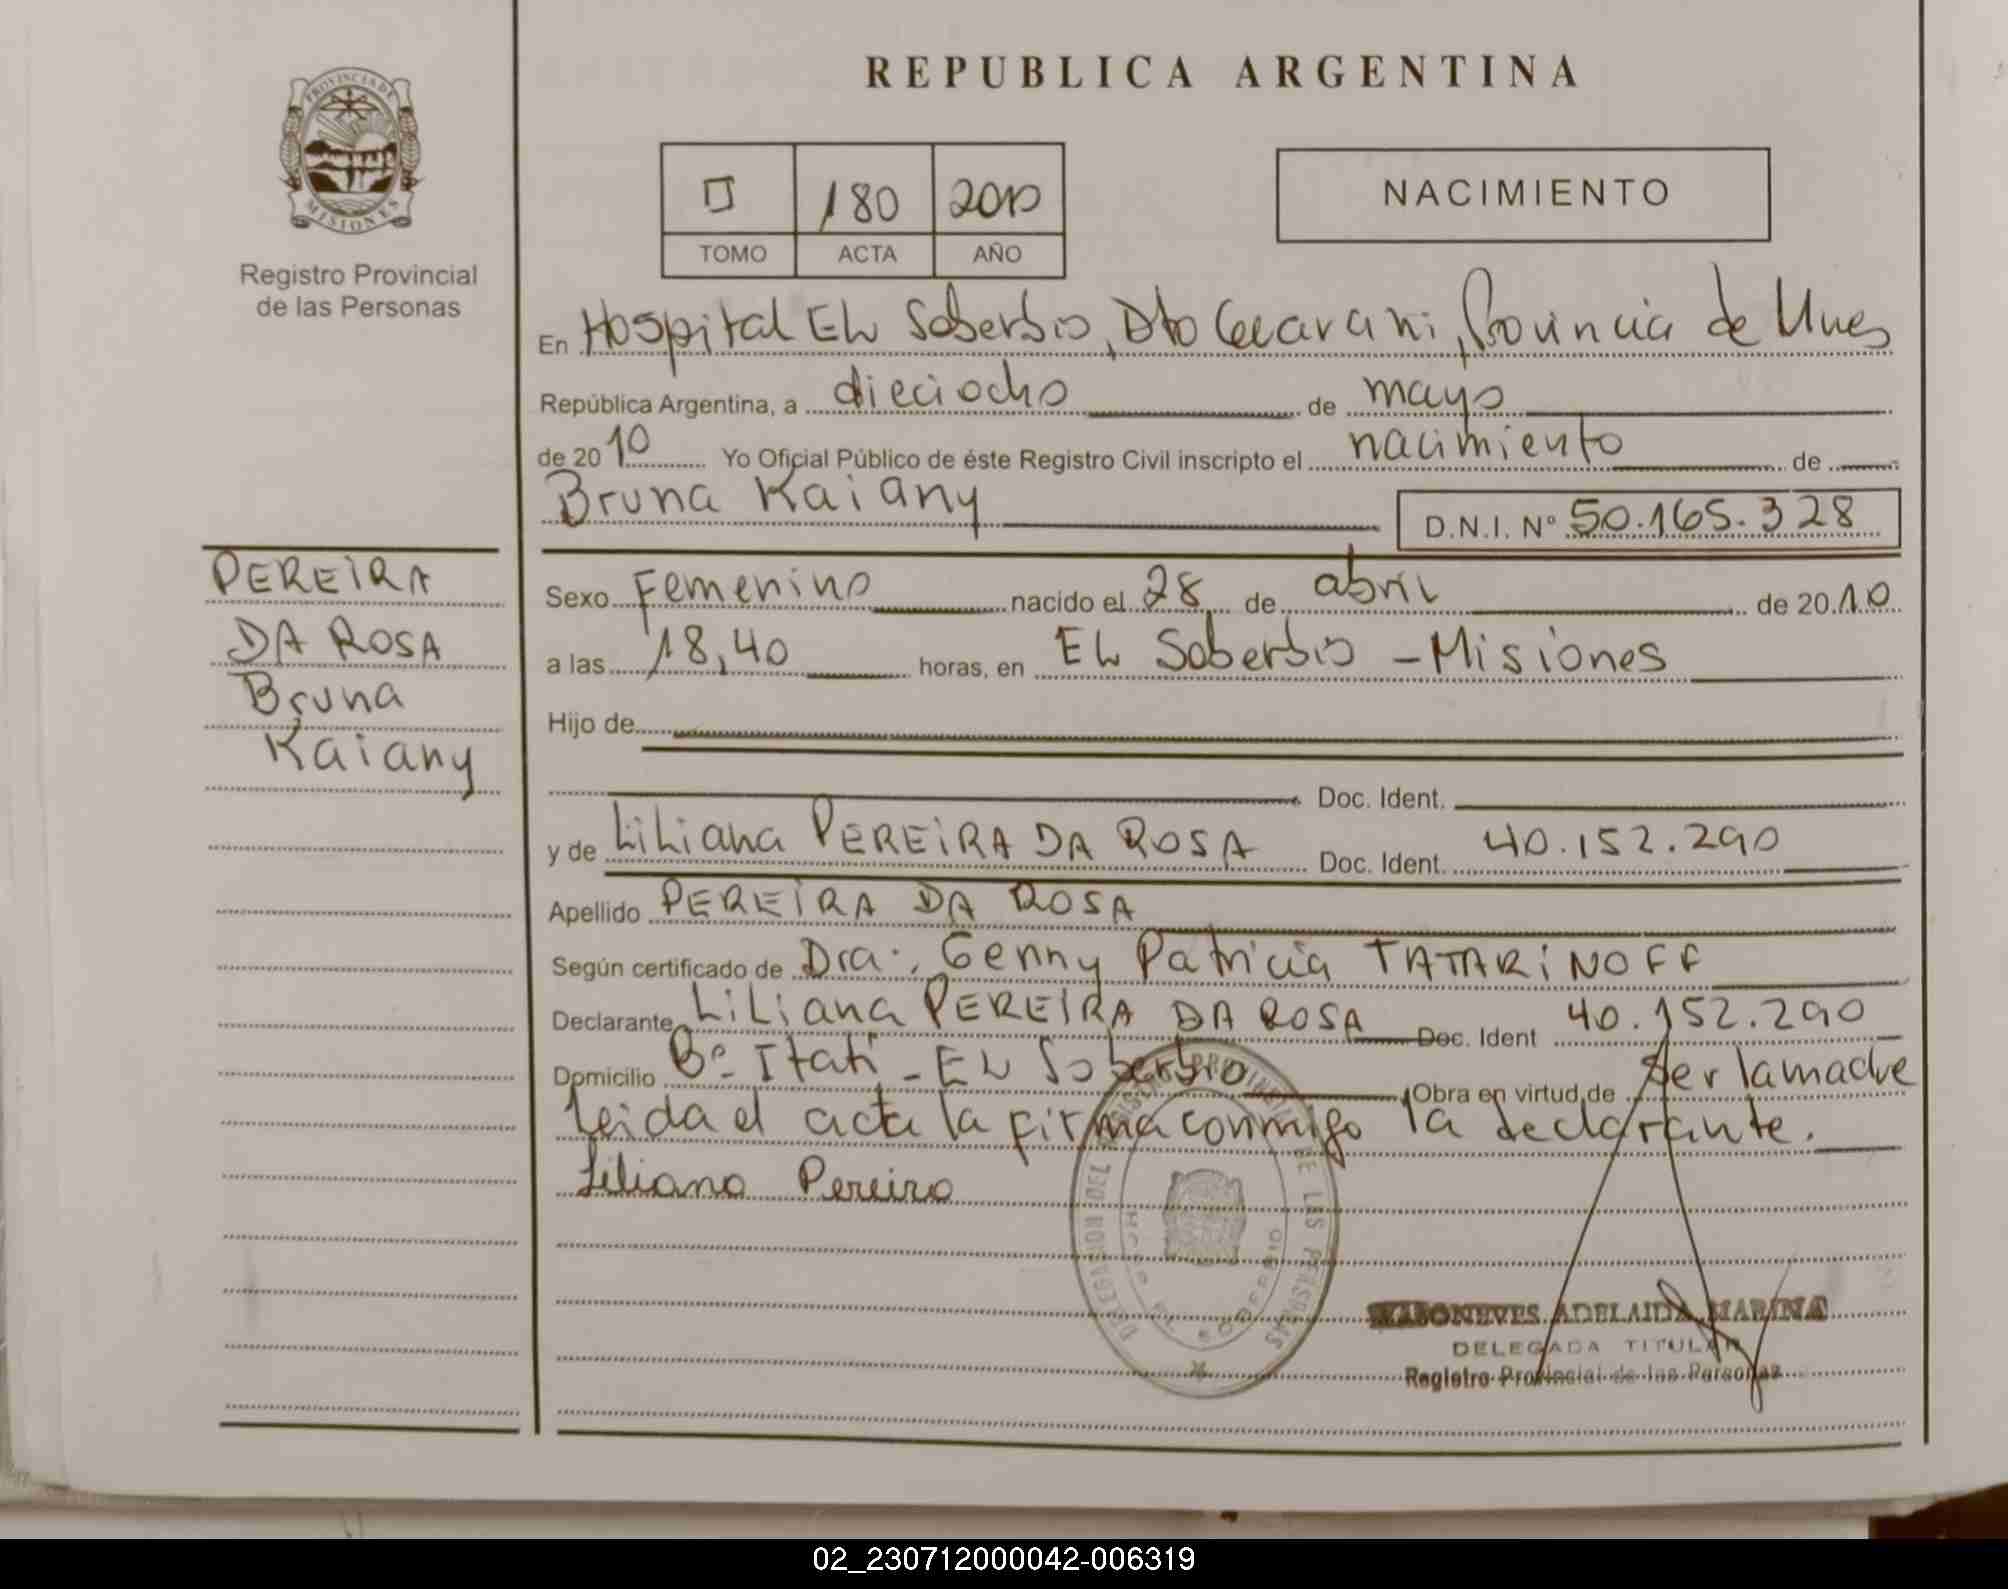 REPUBLICA ARGENTINA
PROVINCIA DE
MISIONES
Registro Provincial
de las Personas
180 2010
TOMO ACTA AÑO
NACIMIENTO
En Hospital El Soberbio, Dto Guarani, Provincia de Mnes
República Argentina, a dieciocho de mayo
de 2010 Yo Oficial Público de éste Registro Civil inscripto el nacimiento de
Bruna Kaiany D.N.I. Nº 50.165.328
PEREIRA
DA ROSA
Bruna
Kaiany
Sexo Femenino nacido el 28 de abril de 2010
a las 18,40 horas, en El Soberbio - Misiones
Hijo de
Doc. Ident.
y de Liliana PEREIRA DA ROSA Doc. Ident. 40.152.290
Apellido PEREIRA DA ROSA
Según certificado de Dra. Genny Patricia TATARINOFF
Declarante Liliana PEREIRA DA ROSA Doc. Ident 40.152.290
Domicilio Bº Itatí - El Soberbio Obra en virtud de ser la madre
leida el acta la firma conmigo la declarante.
Liliana Pereira
DELEGACION DEL REGISTRO PROVINCIAL DE LAS PERSONAS
EL SOBERBIO
ADELAIDA MARINA
DELEGADA TITULAR
Registro Provincial de las Personas
02_230712000042-006319